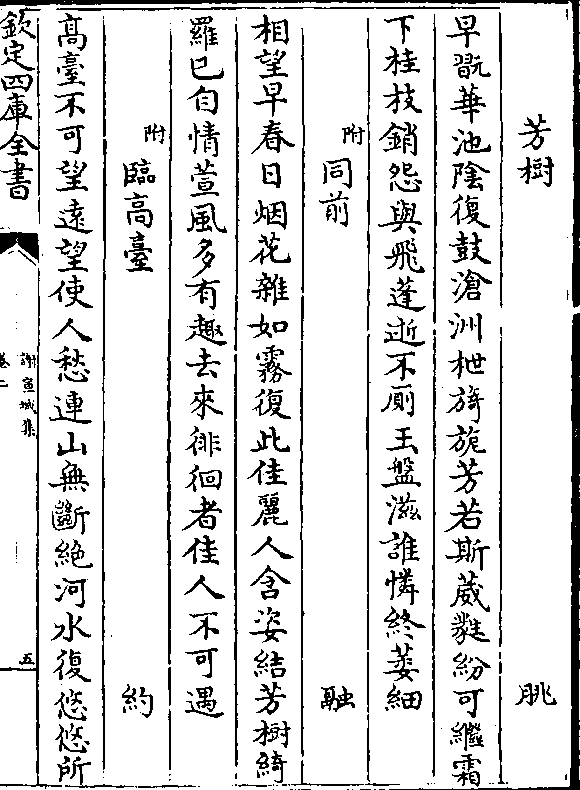 芳樹 朓
早翫華池陰復鼓滄洲枻旖旎芳若斯葳蕤紛可繼霜
下桂枝銷怨與飛蓬逝不厠玉盤滋誰憐終萎細
附同前 融
相望早春日烟花雜如霧復此佳麗人含姿結芳樹綺
羅已自情萱風多有趣去來徘徊者佳人不可遇
附臨高臺 約
高臺不可望遠望使人愁連山無斷絶河水復悠悠所
欽定四庫全書
謝宣城集
卷二
五